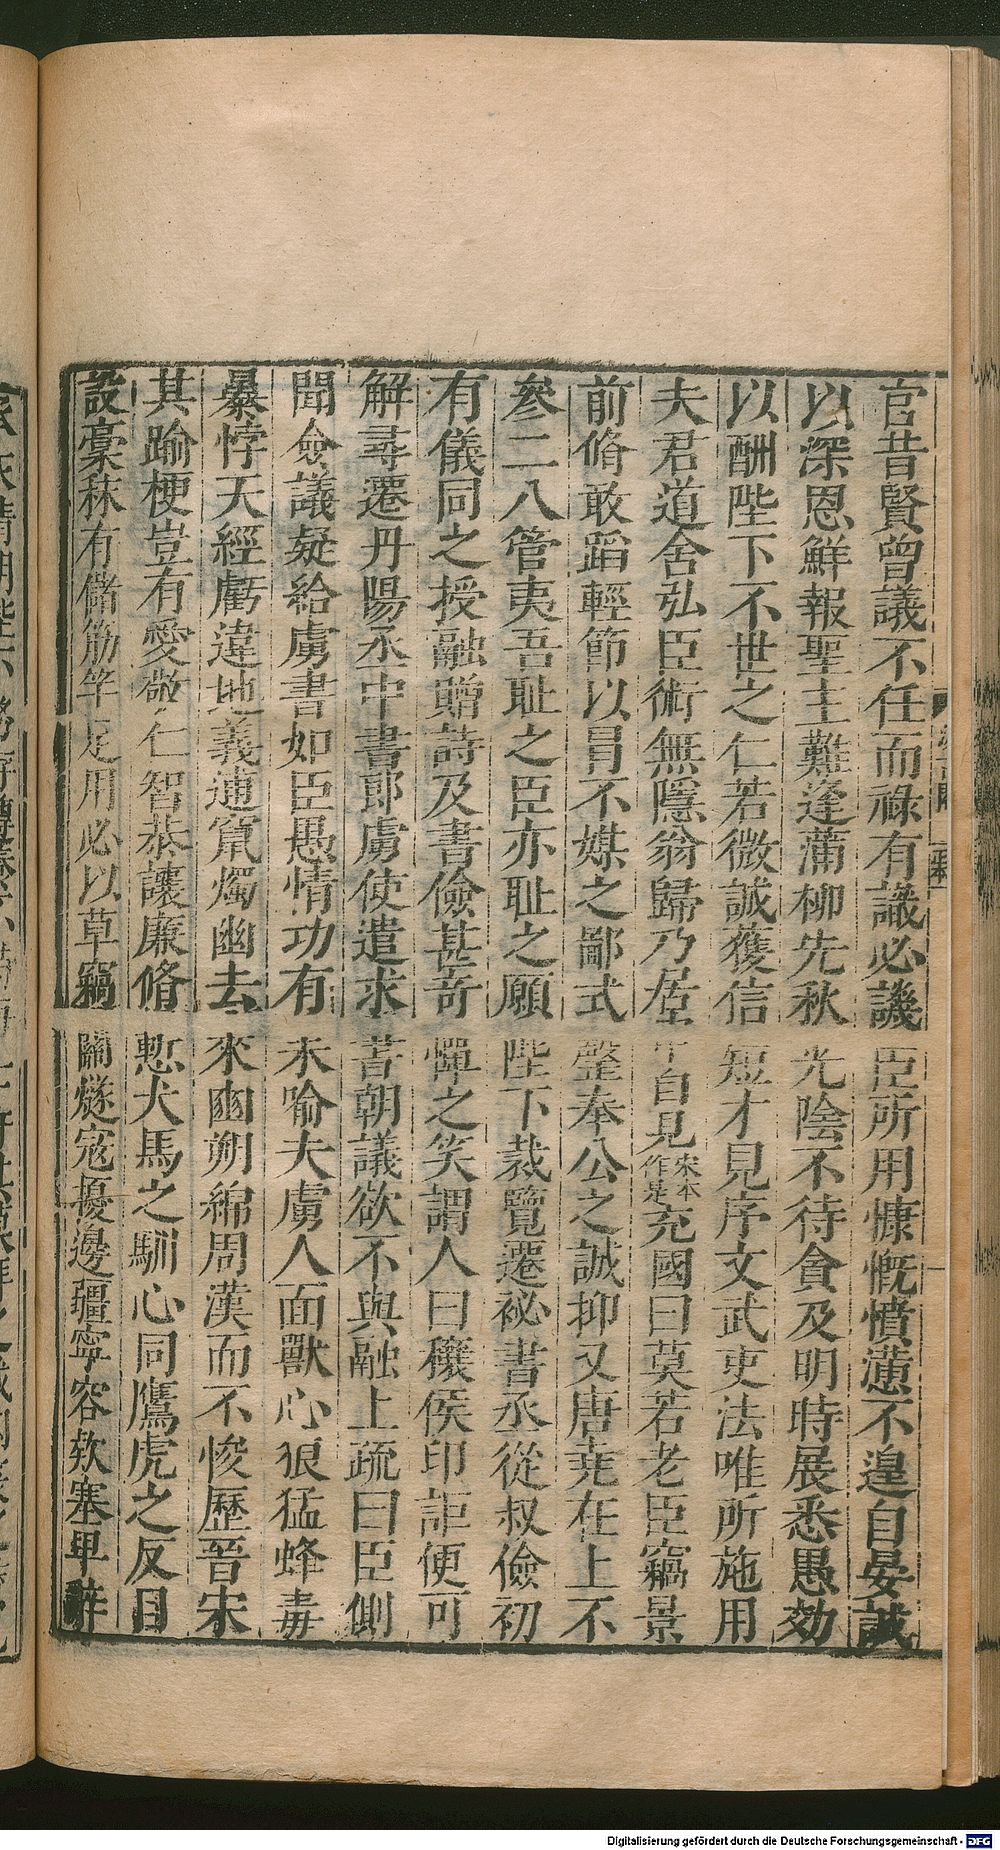 官昔賢曾議不任而祿有識必譏臣所用慷慨憤懣不遑自晏誠
以深恩鮮報聖主難逢蒲柳先秋光陰不待貪及明時展悉愚効
以酬陛下不世之仁若微誠獲信短才見序文武吏法唯所施用
夫君道含弘臣術無隱翁歸乃居中自見宋本作是充國曰莫若老臣竊景
前脩敢蹈輕節以冒不媒之鄙式罄奉公之誠抑又唐堯在上不
參二八管夷吾耻之臣亦耻之願陛下裁覽遷祕書丞從叔儉初
有儀同之授融贈詩及書儉甚奇憚之笑謂人曰穰侯印詎便可
解尋遷丹陽丞中書郎虜使遣求書朝議欲不與融上疏曰臣側
聞僉議疑給虜書如臣愚情功有未喻夫虜人面獸心狼猛蜂毒
暴悖天經虧違地義逋竄燭幽去來豳朔綿周漢而不悛歷晉宋
其踰梗豈有愛敬仁智恭讓廉脩慙犬馬之馴心同鷹虎之反目
設稾秣有儲筋竿足用必以草竊關燧寇擾邊疆寧容款塞卑辭
Digitalisierung gefördert durch die Deutsche Forschungsgemeinschaft - DFG